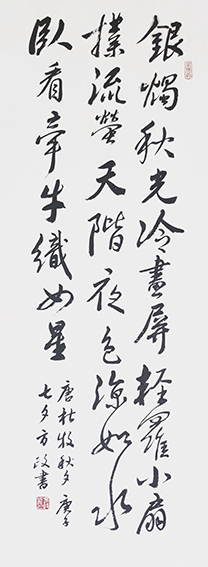 銀燭秋光冷畫屏輕羅小扇
撲流螢天階夜色涼如水
臥看牽牛織女星
唐杜牧秋夕庚子
七夕方政書